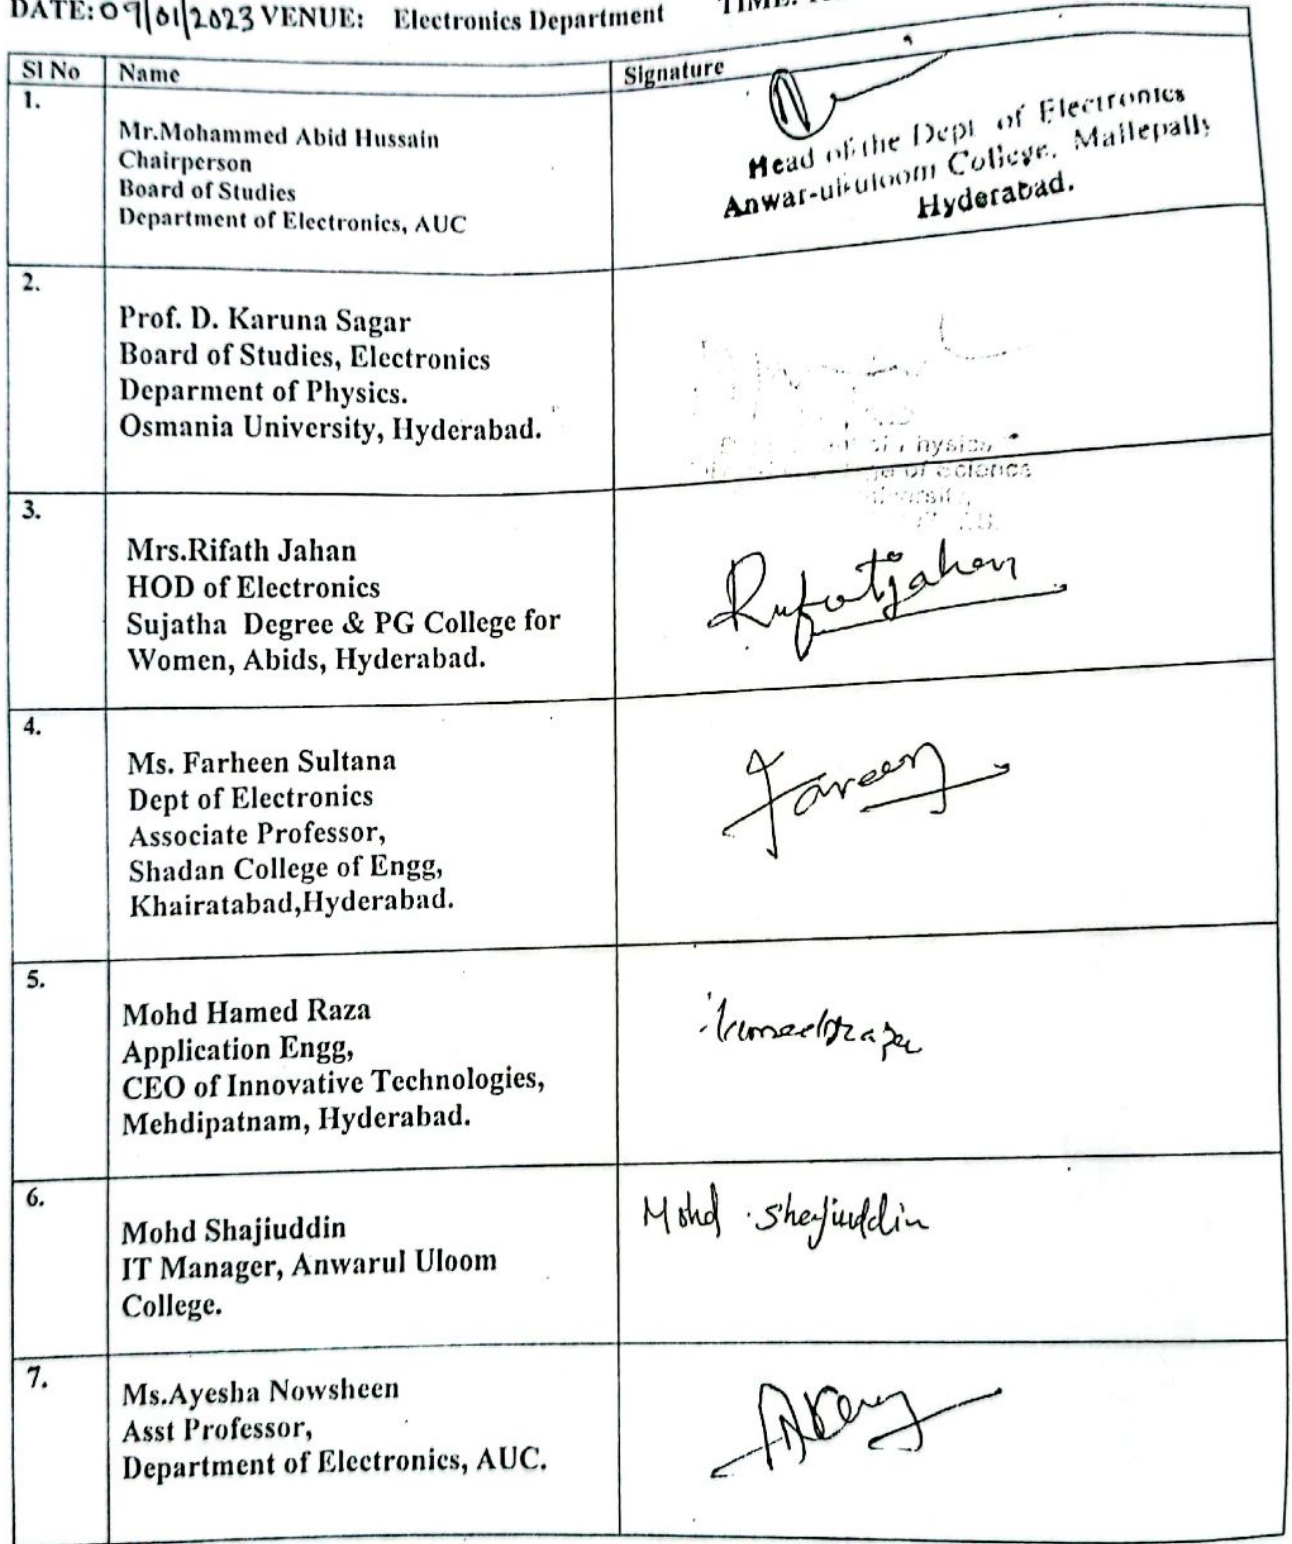 DATE: 09/01/2023 VENUE: Electronics Department TIME:
Sl No Name Signature
1.
Mr.Mohammed Abid Hussain
Chairperson
Board of Studies
Department of Electronics, AUC
Head of the Dept of Electronics
Anwar-ul-uloom College, Mallepally
Hyderabad.
2.
Prof. D. Karuna Sagar
Board of Studies, Electronics
Deparment of Physics.
Osmania University, Hyderabad.
of Physics
of Science
3.
Mrs.Rifath Jahan
HOD of Electronics
Sujatha Degree & PG College for
Women, Abids, Hyderabad.
Rifatjahan
4.
Ms. Farheen Sultana
Dept of Electronics
Associate Professor,
Shadan College of Engg,
Khairatabad,Hyderabad.
Fareen
5.
Mohd Hamed Raza
Application Engg,
CEO of Innovative Technologies,
Mehdipatnam, Hyderabad.
6.
Mohd Shajiuddin
IT Manager, Anwarul Uloom
College.
Mohd Shajiuddin
7.
Ms.Ayesha Nowsheen
Asst Professor,
Department of Electronics, AUC.